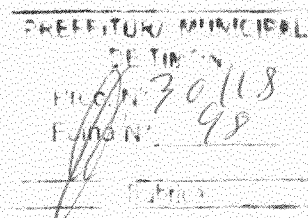 PREFEITURA MUNICIPAL
DE TIMON
Proc. Nº 30118
Folha Nº 98
Rubrica